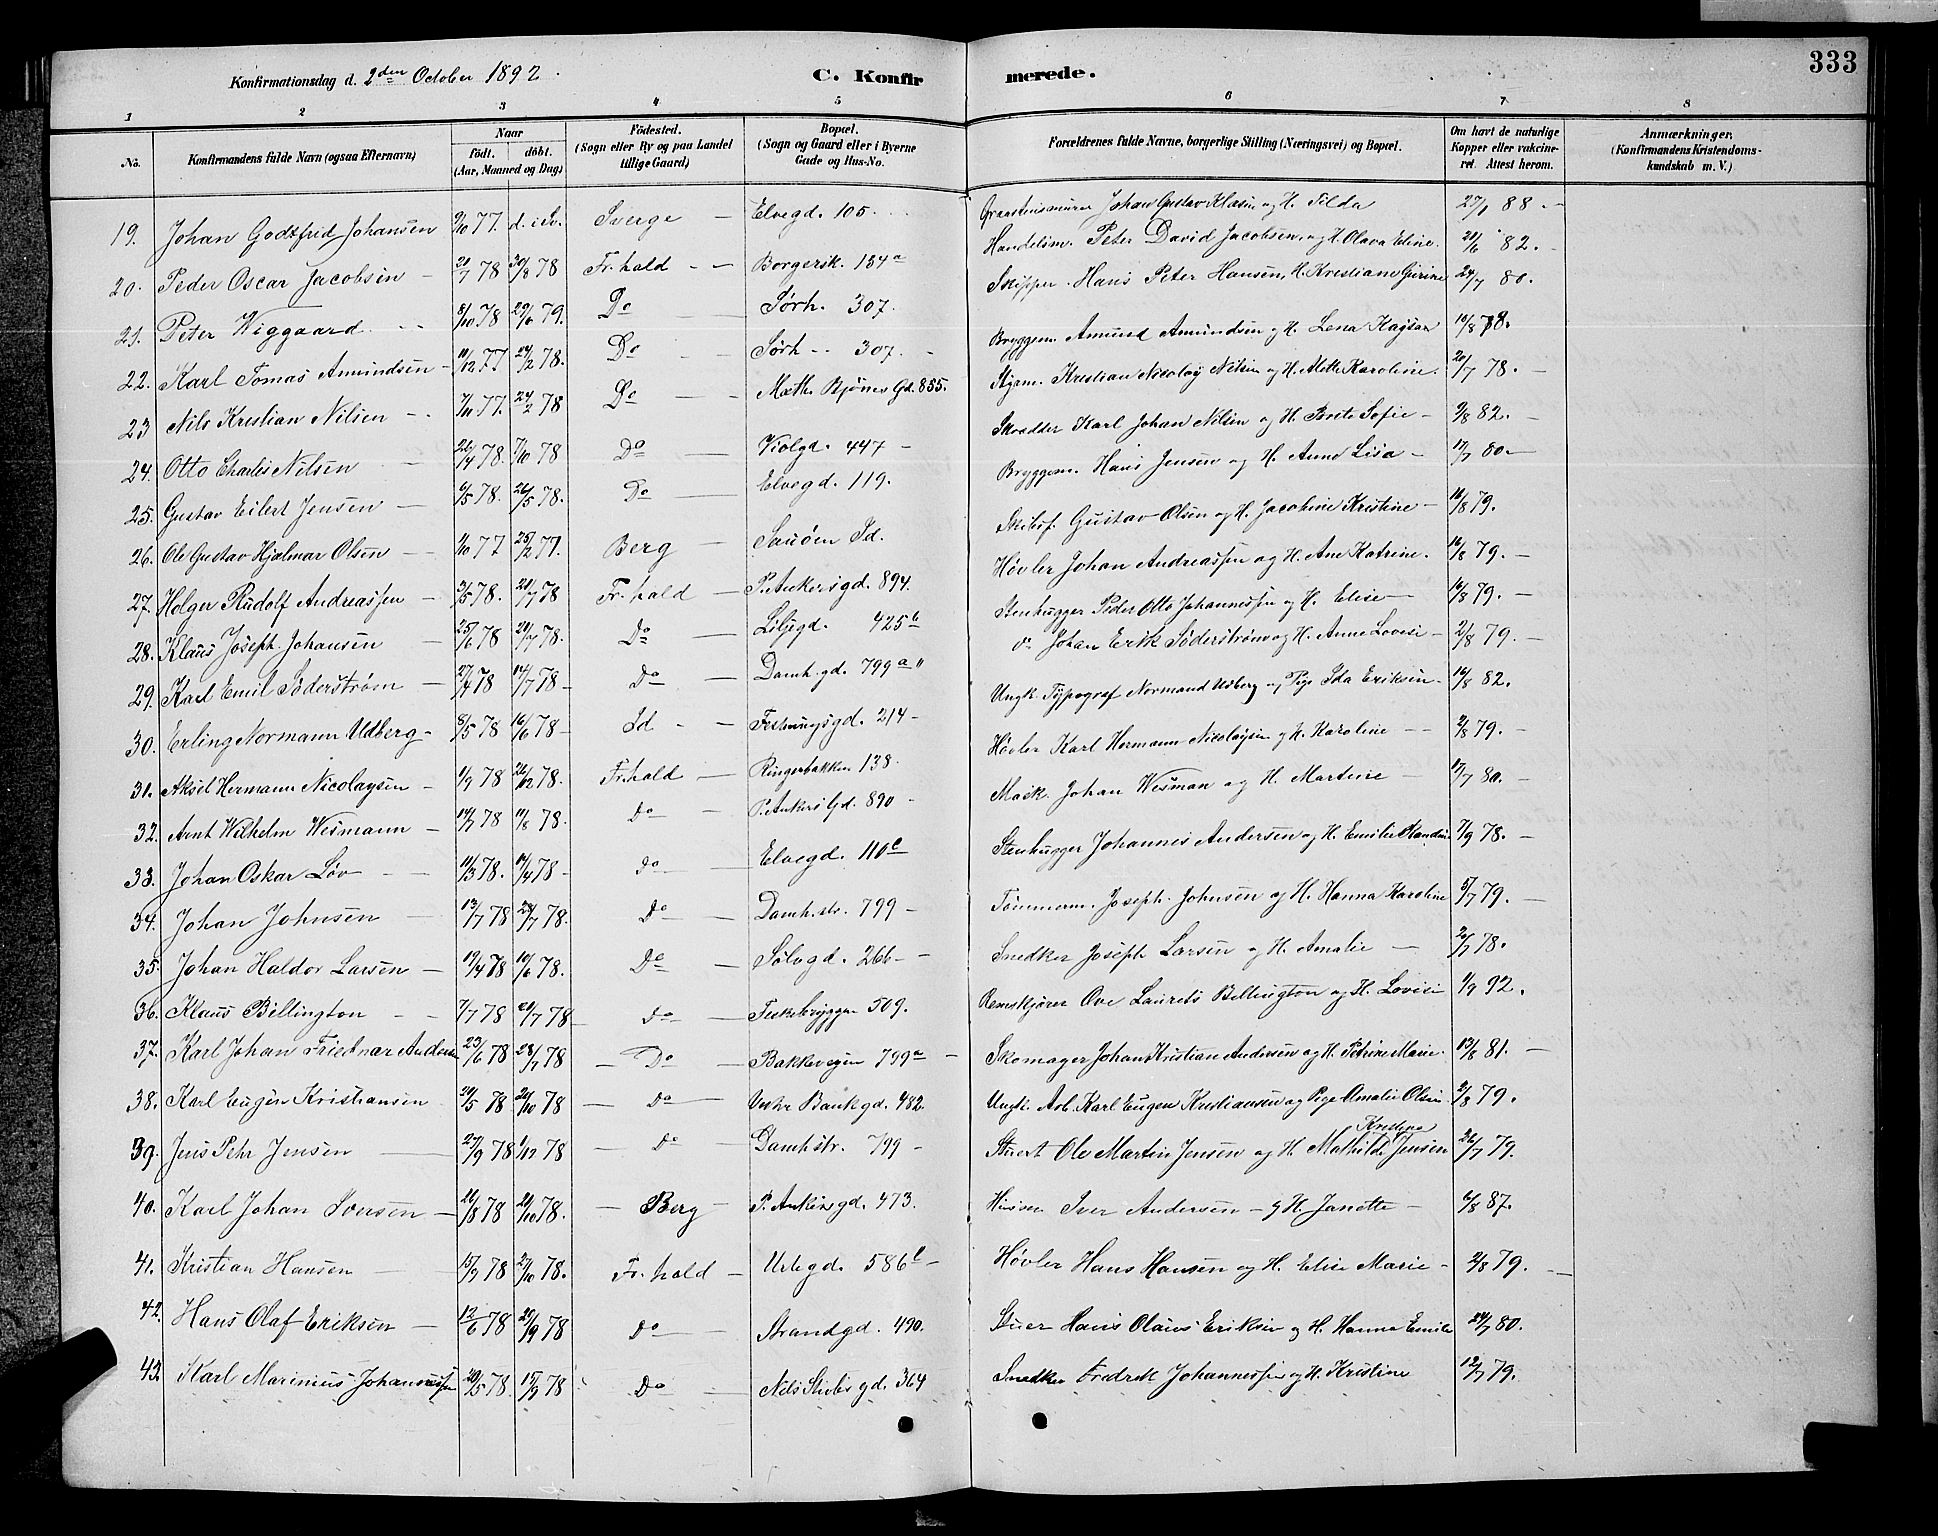 Konfirmationsdag d. 2den October 1892. C. Konfirmerede. 333
1 2 3 4 5 6 7 8
No. Konfirmandens fulde Navn (ogsaa Efternavn) Naar födt. döbt. (Aar, Maaned og Dag) Födested. (Sogn eller By og paa Landet tillige Gaard) Bopæl. (Sogn og Gaard eller i Byerne Gade og Hus-No. Forældrenes fulde Navne, borgerlige Stilling (Næringsvei) og Bopæl. Om havt de naturlige Kopper eller vakcineret. Attest herom. Anmærkninger, (Konfirmandens Kristendomskundskab m. V.)
19. Johan Godtfred Johansen 9/10 77. d. i Sv. Sverge Elvegd. 105. Graastensmurer Johan Gustav Klasen og H. Tilda 27/1 88
20. Peder Oscar Jacobsen 20/7 78 30/8 78 Fr.hald Borgersk. 134a Handelsm. Peter David Jacobsen og H. Olava Eline. 21/6 82.
21. Peter Wiggaard 8/10 78 29/6 79. Do Sørh. 307. Skipper Hans Peter Hansen, H. Kristiane Gurine 24/7 80.
22. Karl Tomas Amundsen 11/12 77 24/2 78. Do Sørh 307. Bryggem. Amund Amundsen og H. Lena Kajsa 16/8 78.
23 Nils Kristian Nilsen 7/11 77. 24/2 78 Do Mathe Bjønes Gd. 855. Stjam. Kristian Nicolay Nilsen og H. Mette Karoline. 20/7 78.
24. Otto Charles Nilsen 26/4 78. 7/10 78 Do Violgd. 447 Skrædder Karl Johan Nilsen og H. Brite Sofie 9/8 82.
25. Gustav Eilert Jensen 6/5 78. 26/5 78. Do Elvegd. 119. Bryggem. Hans Jensen og H. Anne Lisa 17/7 80.
26. Ole Gustav Hjalmar Olsen 1/10 77 25/2 77. Berg Sauøen Id. Skibsf. Gustav Olsen og H. Jacobine Kristine 16/8 79.
27. Holger Rudolf Andreassen 3/5 78. 21/7 78 Fr.hald P. Ankersgd. 894. Høvler Johan Andreassen og H. Ane Katrine. 16/8 79.
28. Klaus Joseph Johansen 25/6 78 21/7 78. Do Liljegd. 425b Stenhugger Peder Otto Johannessen og H. Elise 16/8 79.
29. Karl Emil Söderström 27/4 78 14/7 78 Do Damh.gd. 799a" do Johan Erik Söderström og H. Anne Lovise 2/8 79.
30. Erling Normann Udberg 8/5 78 16/6 78 Id Festningsgd. 214 Ungk. Typograf Normand Udberg og Pige Ida Eriksen 16/8 82.
31. Aksel Hermann Nicolaysen 1/9 78 26/12 78. Fr.hald Ringerbakken 138. Høvler Karl Hermann Nicolaysen og H. Karoline 2/8 79.
32. Arnt Wilhelm Wismann 14/7 78 11/8 78. Do P. Ankers Gd. 890 Mask. Johan Wisman og H. Martine 17/7 80.
33. Johan Oskar Löv 11/3 78. 14/4 78 Do Elvegd. 110b Stenhugger Johannes Andersen og H. Emilie 7/9 78.
34. Johan Johnsen 13/7 78 28/7 78. Do Damh.str. 799 Tömmerm. Joseph Johnsen og H. Hanna Karoline 5/7 79.
35. Johan Haldor Larsen 19/4 78 10/6 78. Do Sölvgd. 266 Snedker Joseph Larsen og H. Amalie 20/7 78.
36. Klaus Billington 7/7 78 21/7 78 Do Fiskebryggen 509. Ove Laurits Billington og H. Lovise 1/9 92.
37. Karl Johan Friednar Andersen 23/6 78 28/7 78 Do Bakkevegen 799a Skomager Johan Kristian Andersen og H. Petrine Marie. 13/8 81.
38. Karl Eugen Kristiansen 20/5 78 20/10 78 Do Vestre Bankgd. 482. Ungk. Arb. Karl Eugen Kristiansen og Pige Amalie Olsen 2/8 79.
39. Jens Petr Jensen 27/9 78 1/12 78 Do Damhstr. 799 Stuert Ole Martin Jensen og H. Mathilde Kristine Jensen 26/7 79.
40. Karl Johan Iversen 21/8 78 20/10 78. Berg P. Ankersgd. 473. Iver Andersen og H. Janette 6/8 87.
41. Kristian Hansen 15/9 78 27/10 78. Fr.hald Urtegd. 586b Høvler Hans Hansen og H. Elise Marie 2/8 79.
42. Hans Olaf Eriksen 12/6 78 29/9 78 Do Strandgd. 490. Stuer Hans Olaus Eriksen og H. Hanna Emilie 24/7 80.
43. Karl Marinius Johannessen 20/5 78 15/9 78 Do Nels Stivbis gd. 364 Snedker Fredrek Johannessen og H. Kristine 12/7 79.